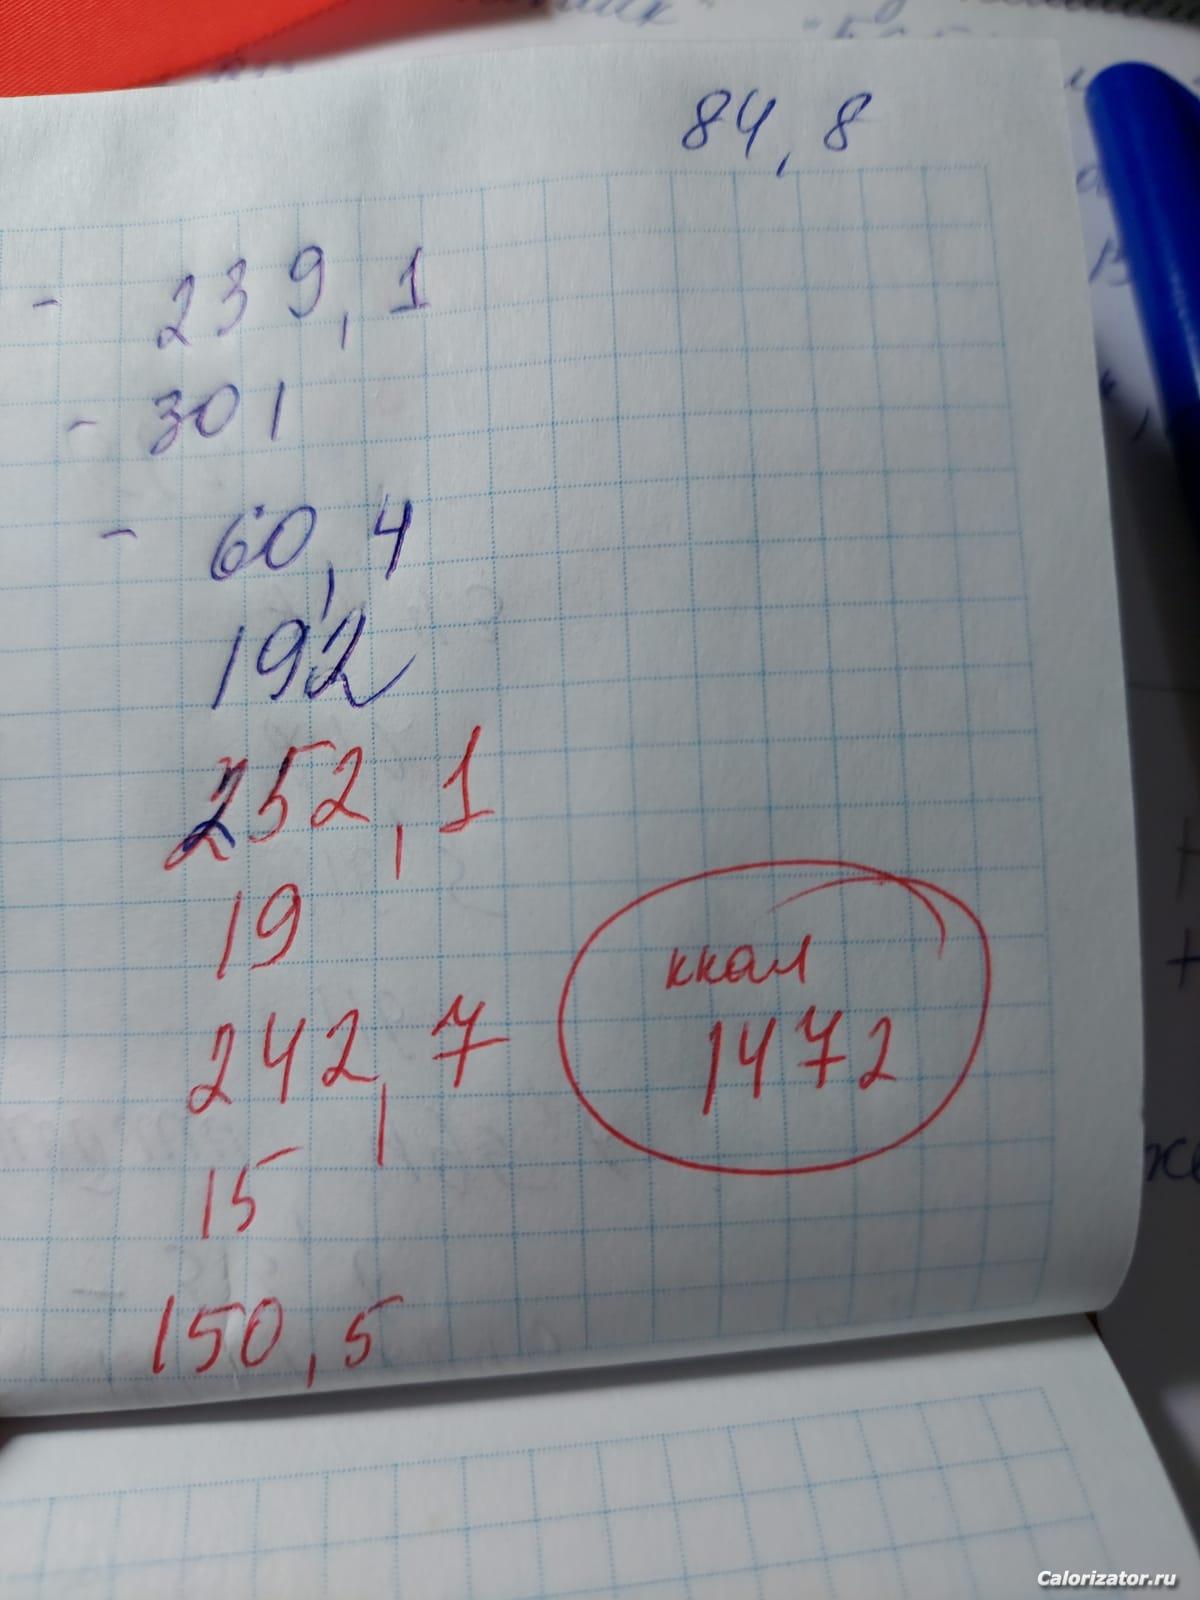 84,8
- 239,1
- 301
- 60,4
192
252,1
19
242,7
ккал
1472
15
150,5
Calorizator.ru